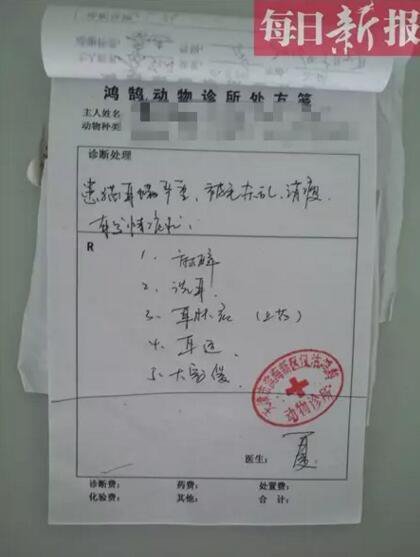 每日新报
鸿鹄动物诊所处方笺
主人姓名
动物种类
诊断处理
患猫耳螨严重，被毛杂乱，消瘦
R
1、麻醉
2、洗耳
3、耳肤君（上药）
4、耳
5、大宠
动物诊所
医生：夏
诊断费： 药费： 处置费：
化验费： 其他： 合计：